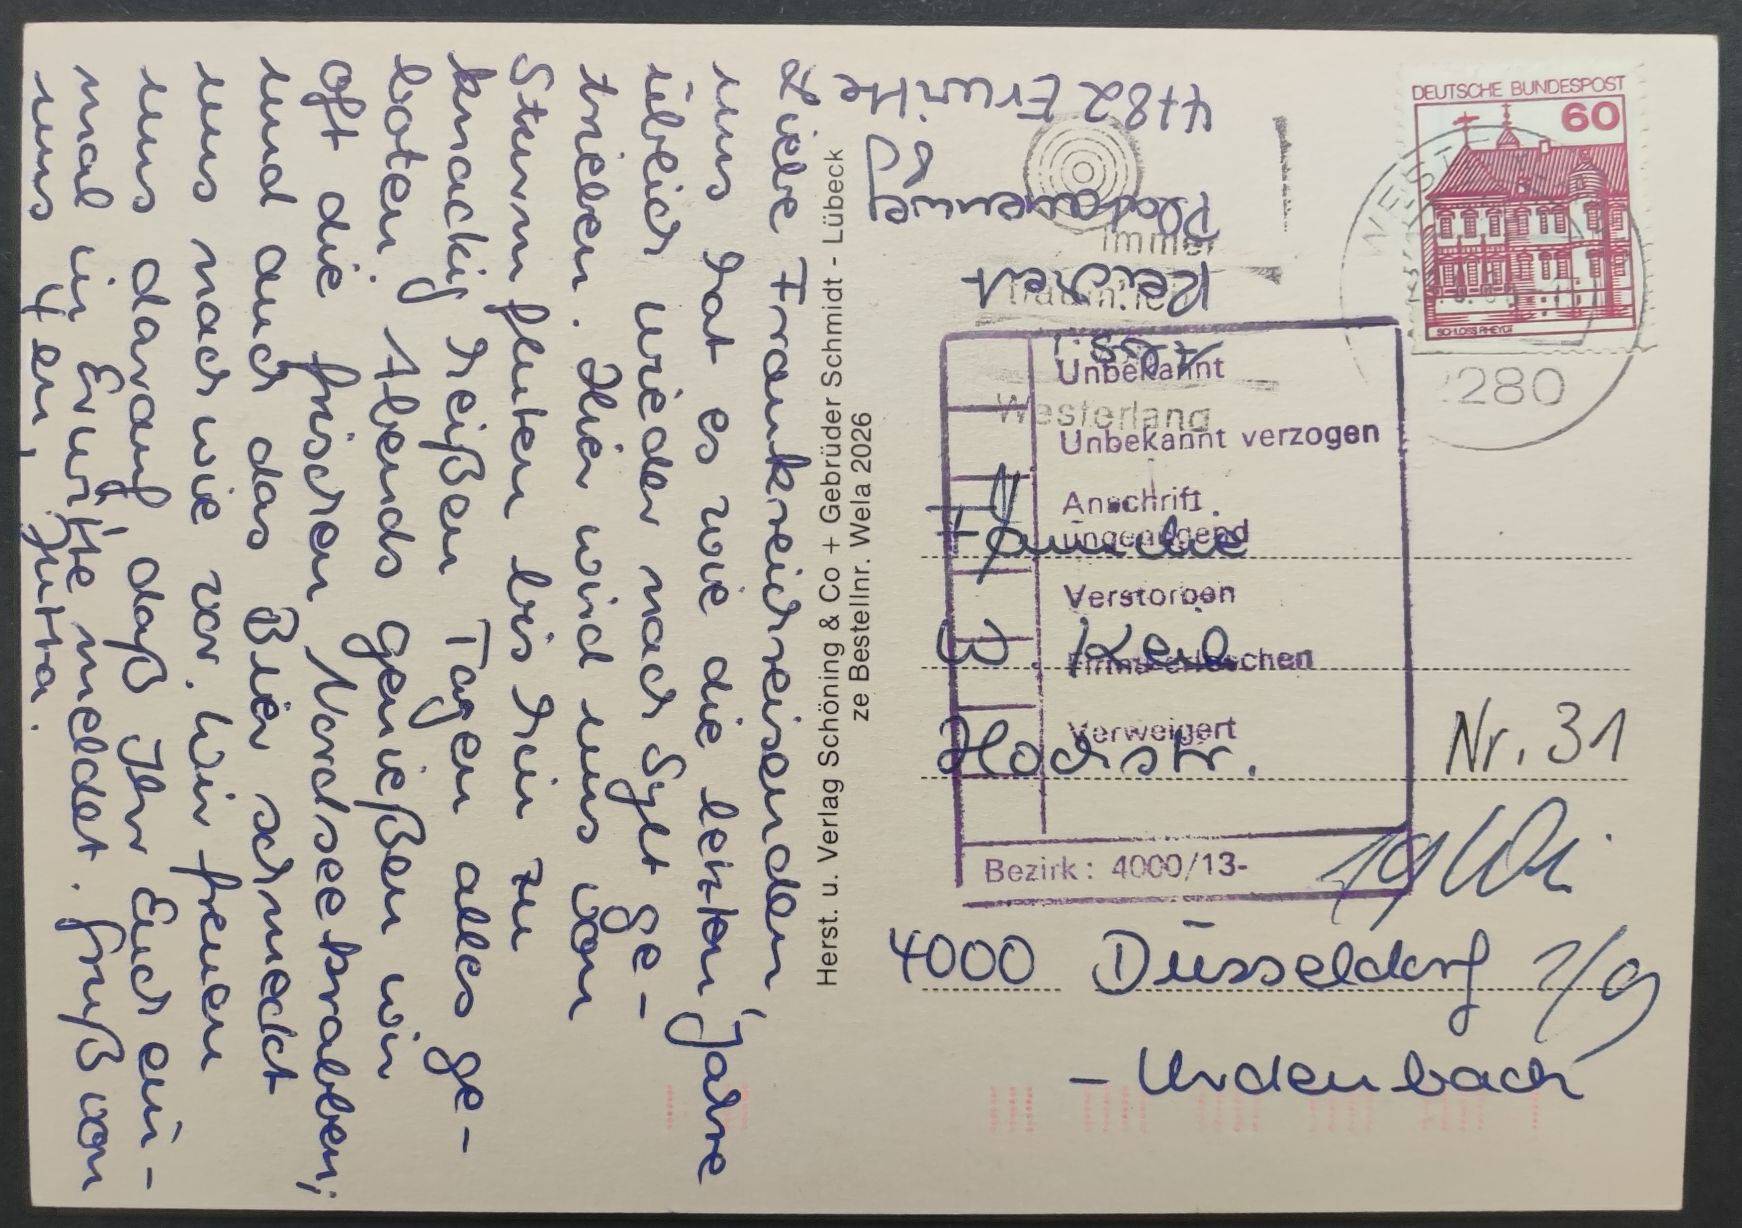 Liebe Frankreichreisenden,
uns hat es wie die letzten Jahre
üblich wieder nach Sylt ge-
trieben. Hier wird uns von
Sturmfluten bis hin zu
knackig heißen Tagen alles ge-
boten. Abends genießen wir
oft die frischen Nordseekrabben;
und auch das Bier schmeckt
uns nach wie vor. Wir freuen
uns darauf, daß Ihr Euch ein-
mal in Erwitte meldet. Gruß von
uns 4en, Jutta.
Herst. u. Verlag Schöning & Co + Gebrüder Schmidt - Lübeck
ze Bestellnr. Wela 2026
DEUTSCHE BUNDESPOST
60
SCHLOSS RHEYDT
2280
immer
Westerland
Abs.:
Reichelt
Platanenweg
4782 Erwitte
Unbekannt
Unbekannt verzogen
Anschrift
ungenügend
Verstorben
Firma erloschen
Verweigert
Bezirk: 4000/13-
B. Keil
Hochstr.
Nr. 31
4000 Düsseldorf
- Urdenbach